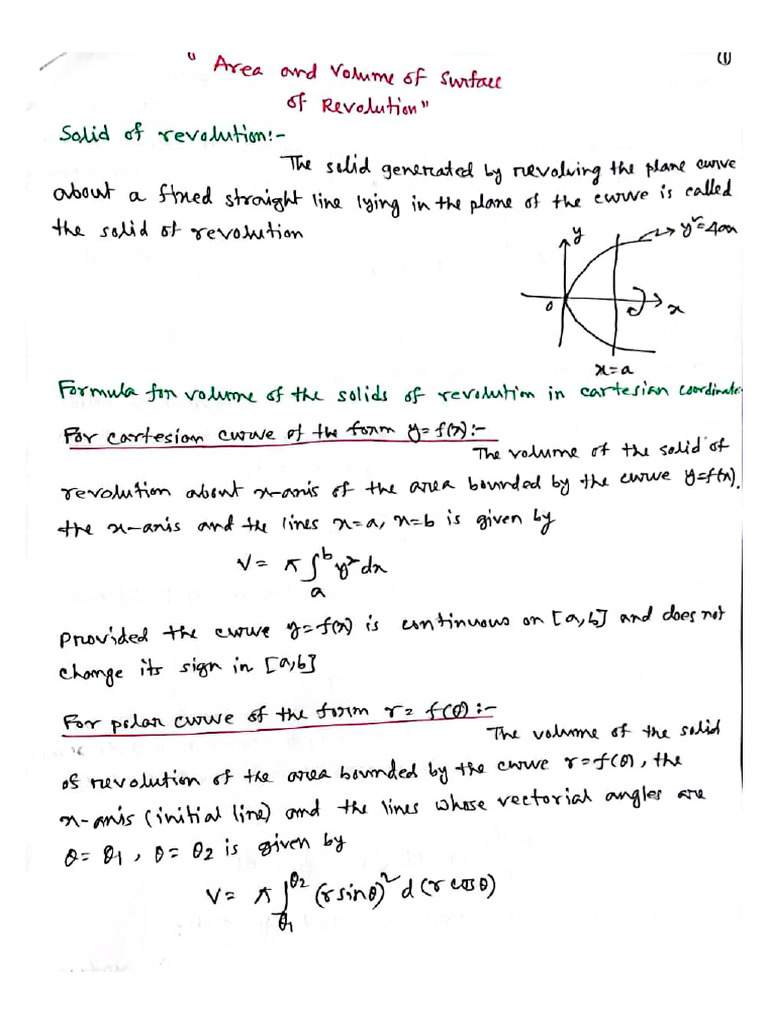 (1)
" Area and Volume of Surface
of Revolution"
Solid of revolution:-
The solid generated by revolving the plane curve
about a fixed straight line lying in the plane of the curve is called
the solid of revolution
y
y²=4ax
0
x
x=a
Formula for volume of the solids of revolution in cartesian coordinate
For cartesian curve of the form y=f(x):-
The volume of the solid of
revolution about x-axis of the area bounded by the curve y=f(x),
the x-axis and the lines x=a, x=b is given by
V= π∫ₐᵇ y²dx
Provided the curve y=f(x) is continuous on [a,b] and does not
change its sign in [a,b]
For polar curve of the form r= f(θ):-
The volume of the solid
of revolution of the area bounded by the curve r=f(θ), the
x-axis (initial line) and the lines whose vectorial angles are
θ= θ₁, θ= θ₂ is given by
V= π∫_θ₁^θ₂ (r sinθ)² d(r cosθ)